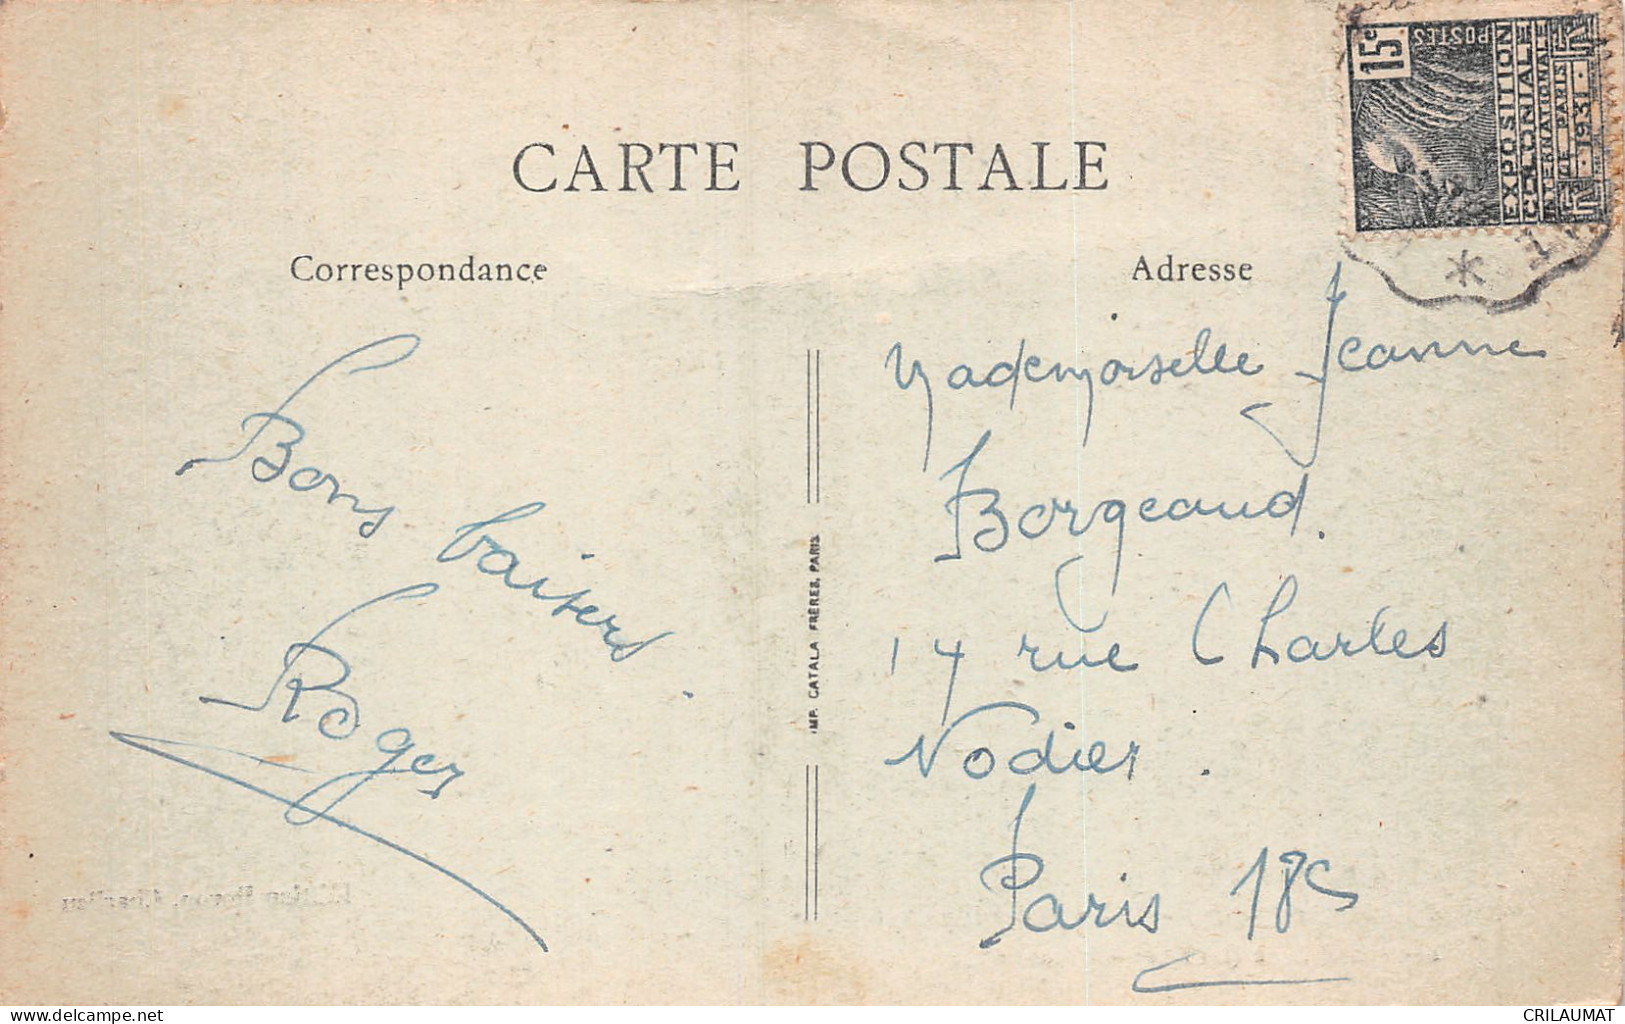 CARTE POSTALE
Correspondance
Adresse
15c
POSTES
EXPOSITION
COLONIALE
INTERNATIONALE
DE PARIS
1931
Bons baisers
Roger
IMP. CATALA FRÈRES, PARIS
Mademoiselle Jeanne
Borgeaud.
14 rue Charles
Nodier.
Paris 18e
www.delcampe.net
CRILAUMAT